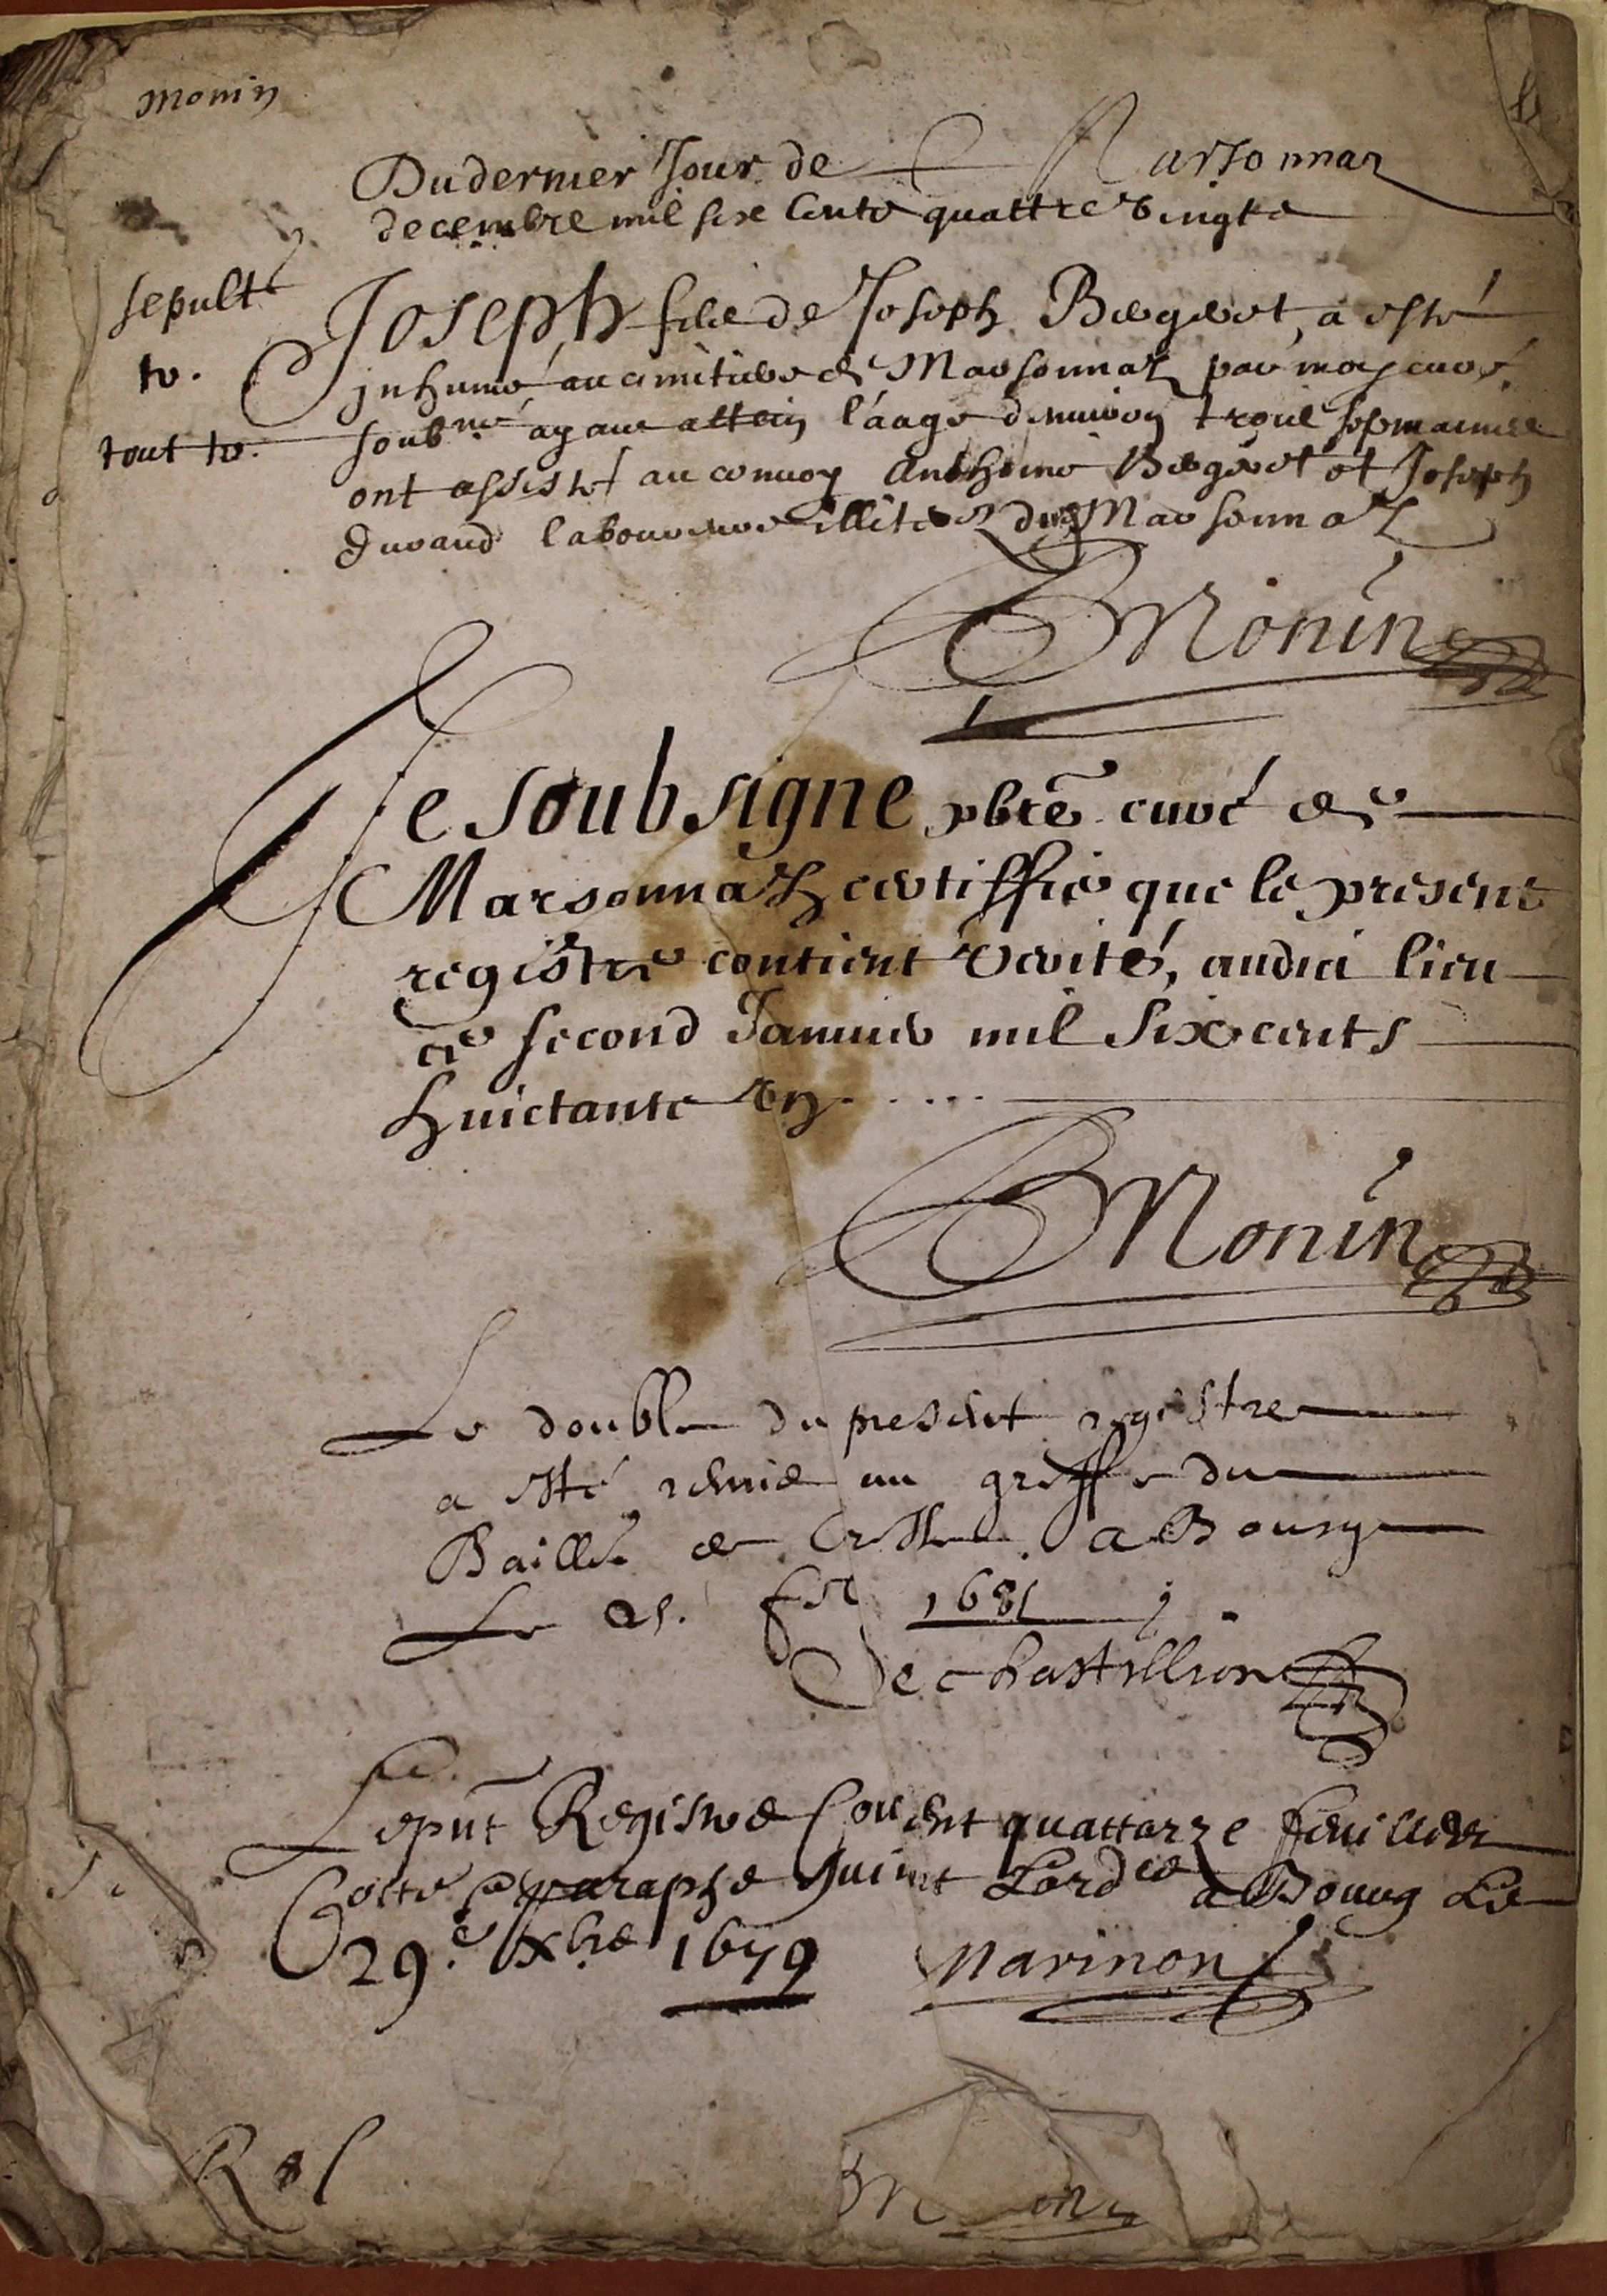 Monin
Du dernier Jour de Marsonnaz
decembre mil six Cents quattre vingts
sepult
Joseph filz de Joseph Bergeret, a esté
to.
inhumé au cimitiere de Marsonnaz par moy curé
tout to.
soub.né ayant attein l'aage d'environ trois sepmaines
ont assisté au convoy Anthoine Bergeret et Joseph
Durand laboureurs illiterez dud Marsonnaz
BMonin
Je soubsigne pbrē curé de
Marsonnaz certiffie que le present
registre contient verité, audict lieu
ce second Januier mil Six cents
huictante vn.....
BMonin
Le double du present registre
a esté remis au greffe du
Baille de Bresse a Bourg
Le 25. fer 1681
De chastillion
Le pnt Registre Contient quattorze feuillets
Cotté & paraphé suivnt Lordce a Bourg Le
29.e Xbre 1679 Marinon
Rol